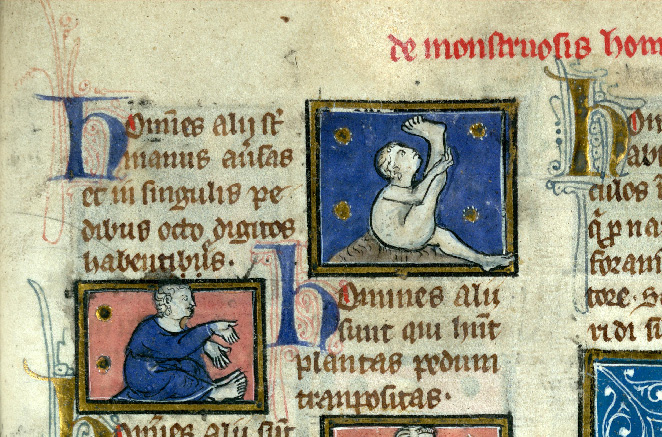 de monstruosis hom
Hom̄es alij st̄
manus aūsas
et in singulis pe
dibus octo digitos
habentibus.
Homines alii
sunt qui hūt
plantas pedum
transpositas.
Hom̄es alii sūt
Hom
abe
culos
foram
tore. s
ridi